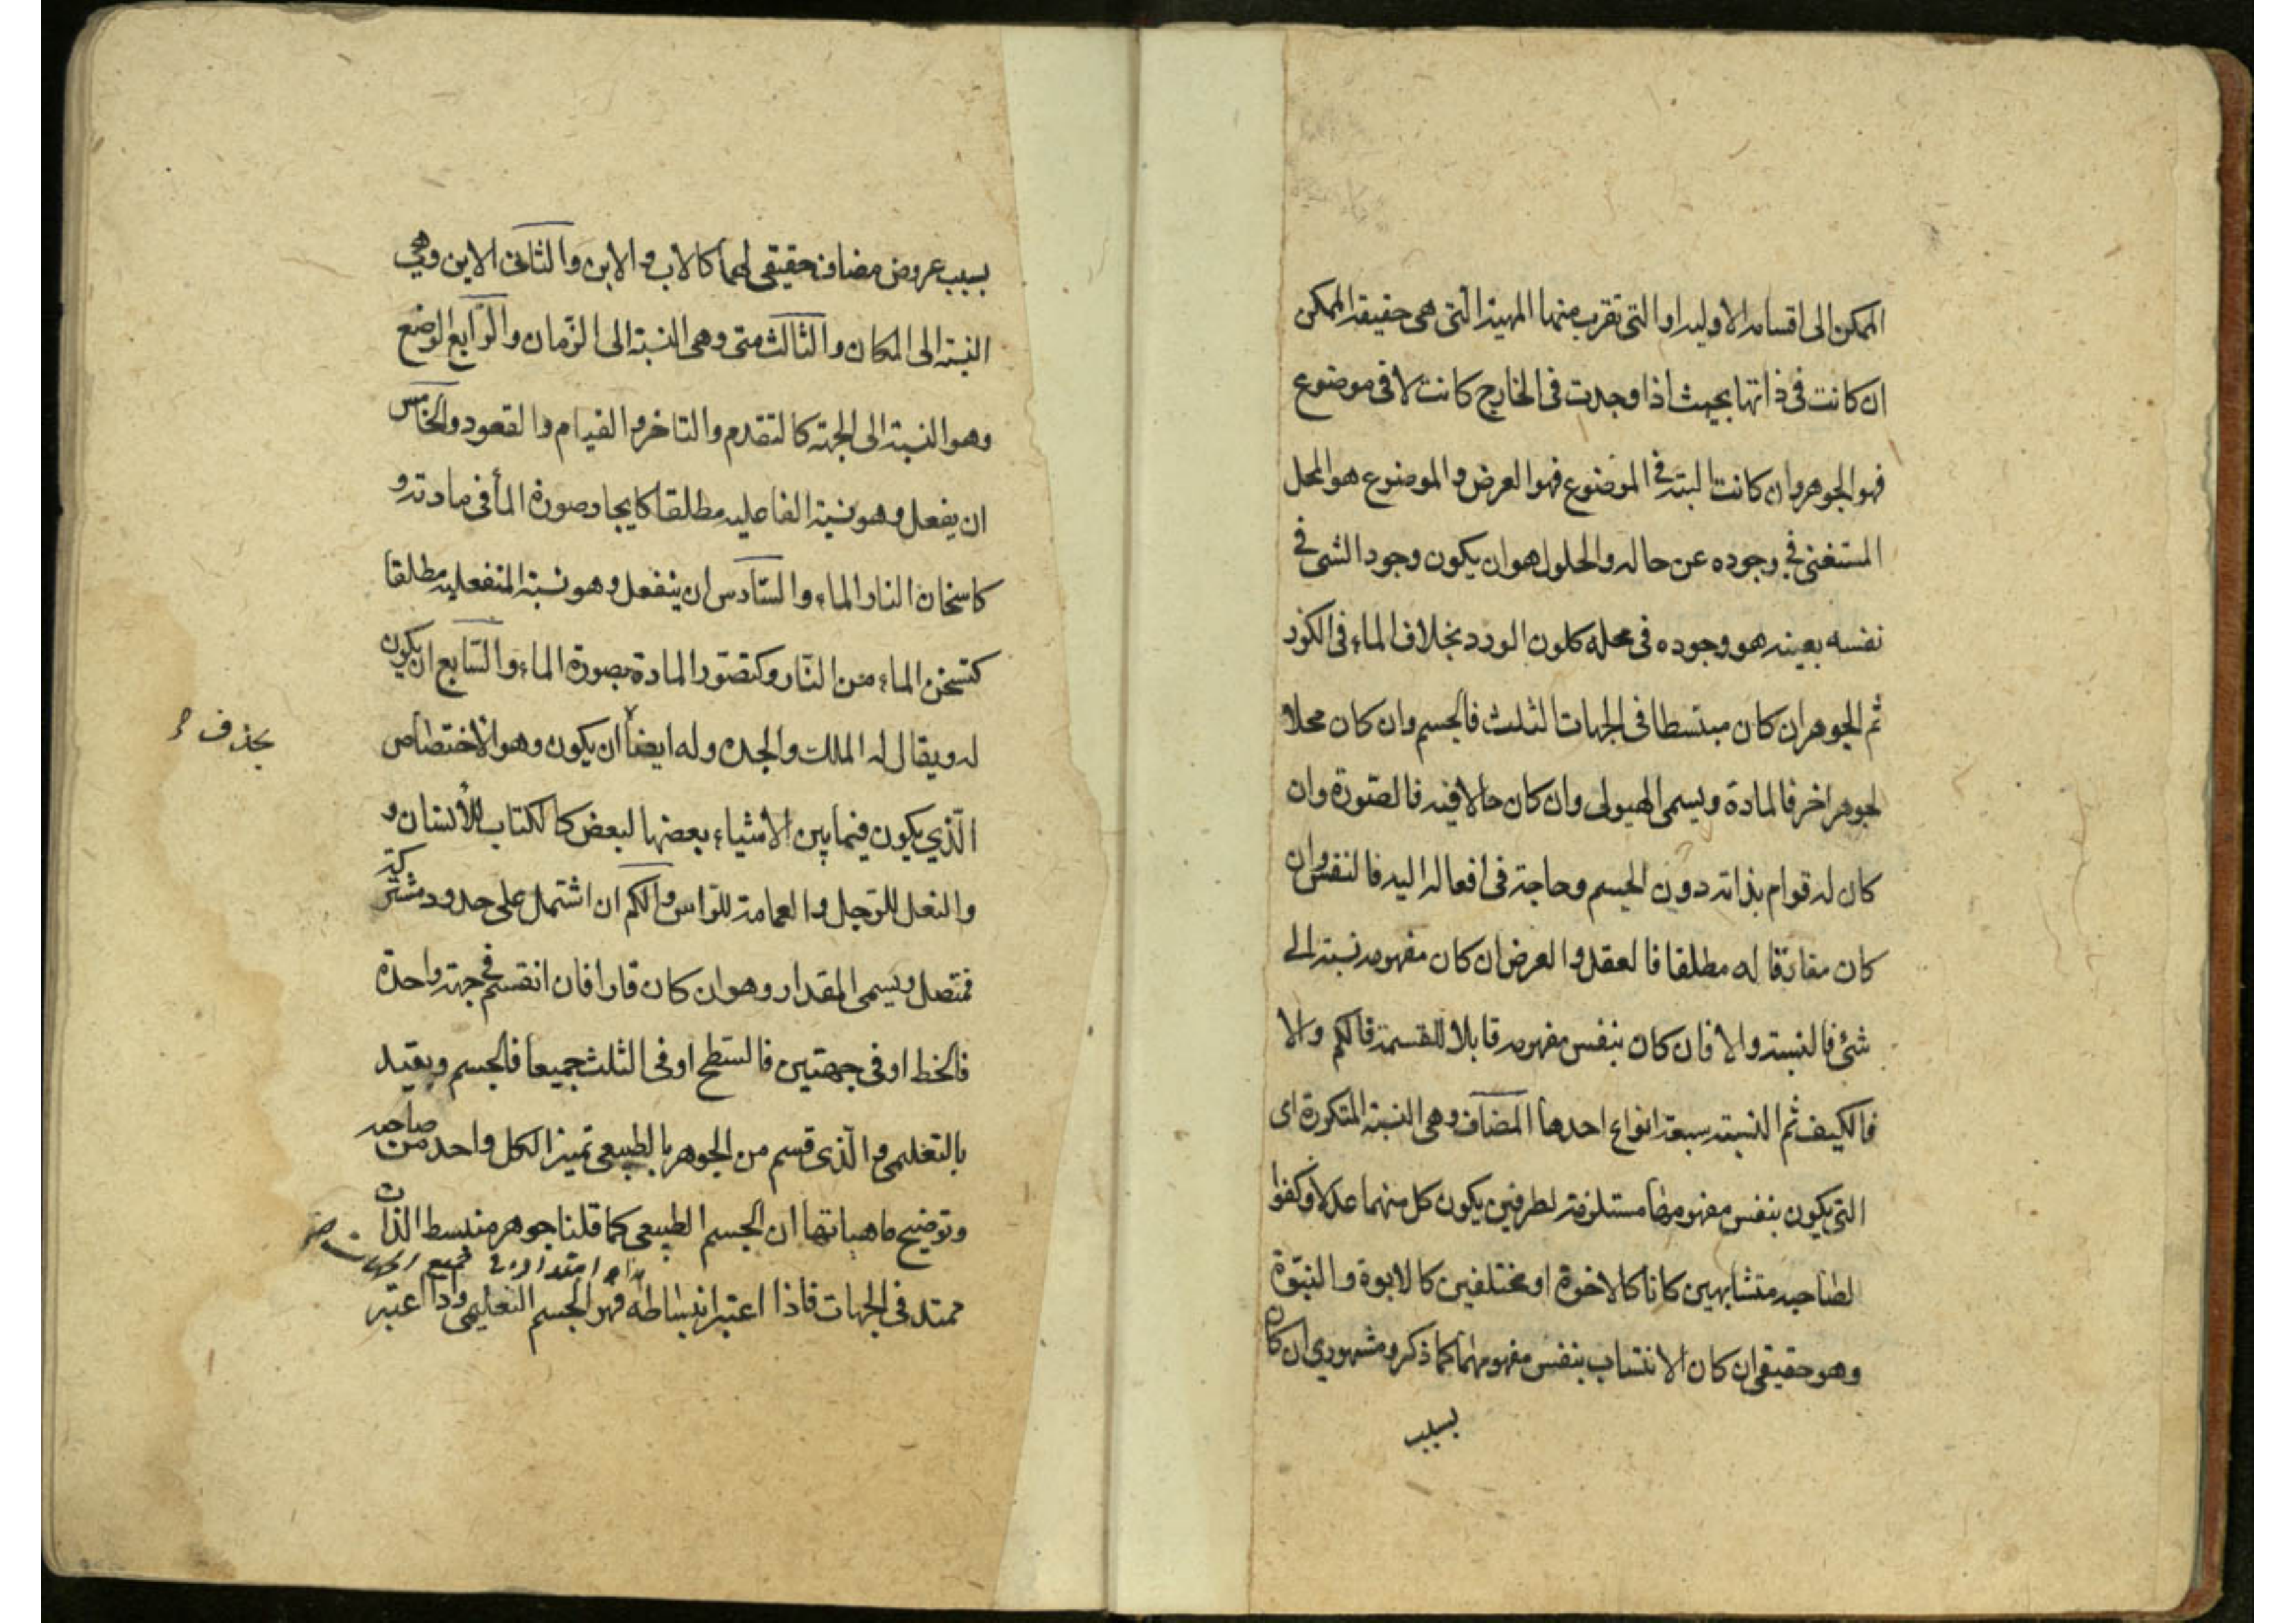 الممكن الى اقسامه الاوليه او التى تقرب منها المهية التى هى حقيقة الممكن
ان كانت فى ذاتها بحيث اذا وجدت فى الخارج كانت لا فى موضوع
فهو الجوهر وان كانت البتة فى الموضوع فهو العرض والموضوع هو المحل
المستغنى فى وجوده عن حاله والحلول هو ان يكون وجود الشى فى
نفسه بعينه هو وجوده فى محله كلون الورد بخلاف الماء فى الكوز
ثم الجوهر ان كان مبتسطا فى الجهات الثلث فالجسم وان كان محلا
لجوهر اخر فالمادة ويسمى الهيولى وان كان حالا فيه فالصورة وان
كان له قوام بذاته دون الجسم وحاجة فى افعاله اليه فالنفس وان
كان مفارقا له مطلقا فالعقل والعرض ان كان مفهومه نسبة الى
شئ فالنسبة والا فان كان بنفس مفهومه قابلا للقسمة فالكم والا
فالكيف ثم النسبة سبعة انواع احدها المضاف وهى النسبة المتكررة اى
التى يكون بنفس مفهومها مستلزمة لطرفين يكون كل منهما عدلا وكفوا
لصاحبه متشابهين كانا كالاخوة او مختلفين كالابوة والبنوة
وهو حقيقى ان كان الانتساب بنفس مفهومهما كما ذكر ومشهورى ان كان
بسبب
بسبب عروض مضاف حقيقى لهما كالاب والابن والثانى الاين وهى
النسبة الى المكان والثالث متى وهى النسبة الى الزمان والرابع الوضع
وهو النسبة الى الجهة كالتقدم والتاخر والقيام والقعود والخامس
ان يفعل وهو نسبة الفاعليه مطلقا كايجاد صورة الماء فى مادته و
كاسخان النار الماء والسادس ان ينفعل وهو نسبة المنفعليه مطلقا
كتسخن الماء من النار وكتصور المادة بصورة الماء والسابع ان يكون
له ويقال له الملك والجده وله ايضا ان يكون وهو الاختصاص
بحذف
الذى يكون فيما بين الاشياء بعضها لبعض كالكتاب للانسان و
والنعل للرجل والعمامة للراس والكم ان اشتمل على حدود مشتركة
فمتصل ويسمى المقدار وهو ان كان قارا فان انقسم فى جهة واحدة
فالخط او فى جهتين فالسطح او فى الثلث جميعا فالجسم ويقيد
بالتعليمى والذى قسم من الجوهر بالطبيعى تميزا لكل واحد من صاحبه
وتوضيح ماهياتها ان الجسم الطبيعى كما قلنا جوهر منبسط الذات
ممتد فى الجهات فاذا اعتبر انبساطه فهو الجسم التعليمى واذا اعتبر